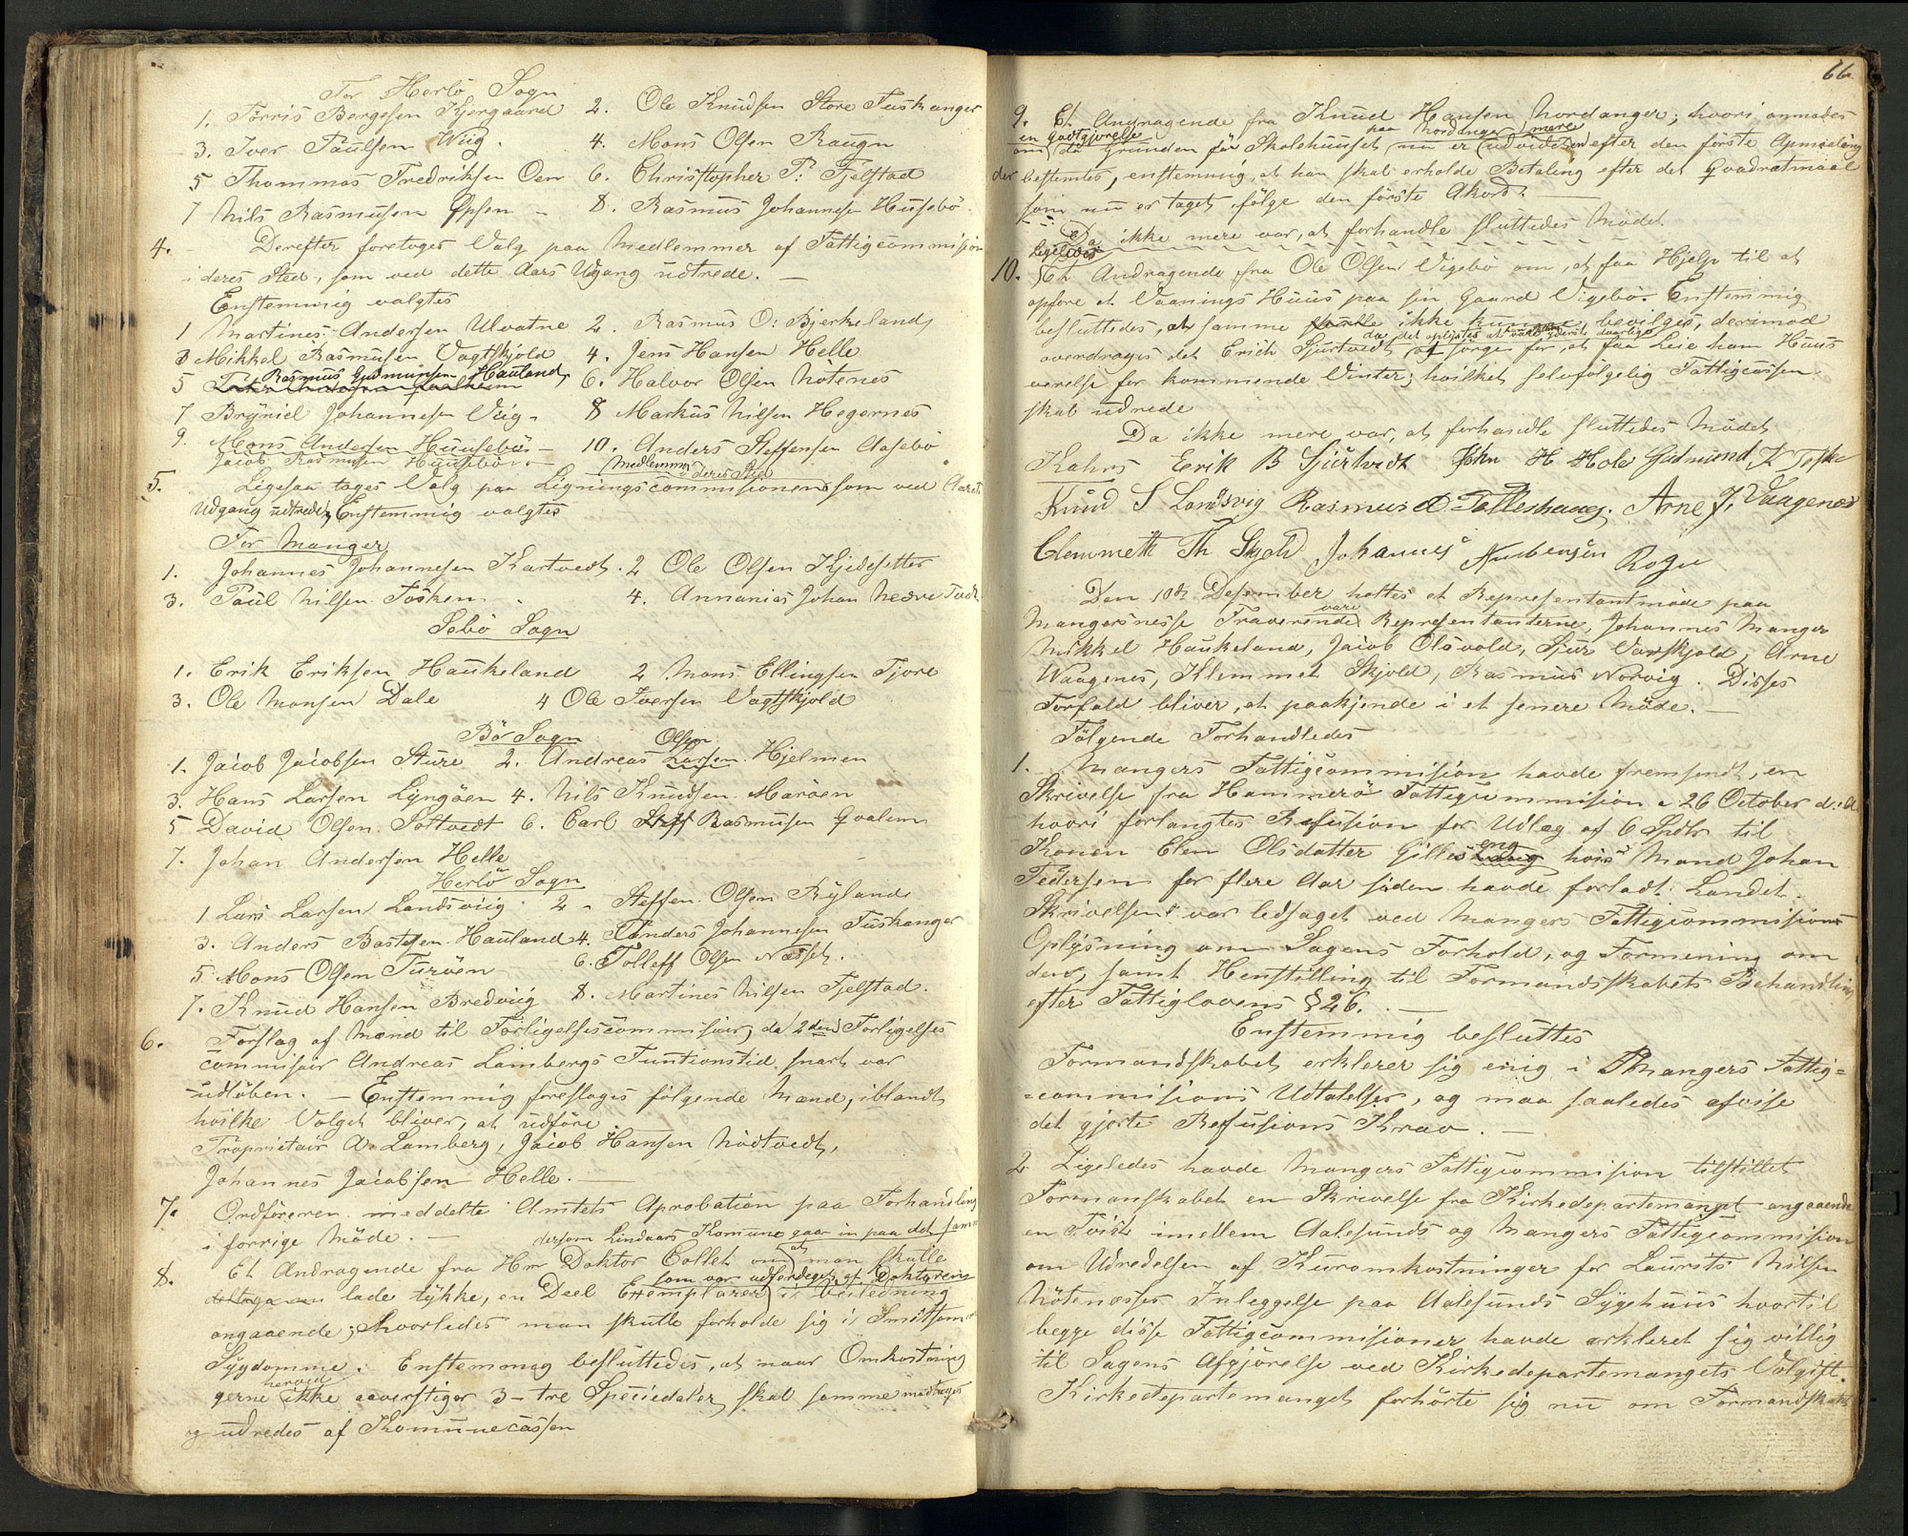 For Herlö Sogn
1. Torris Bergesen Kjergaard 2. Ole Knudsen Store Tuskanger
3. Iver Paulsen Wiig. 4. Mons Olsen Raugn
5 Thommas Fredriksen Oen 6. Christtopher P: Fjelstad
7 Nils Rasmusen Epsen - 8. Rasmus Johannesen Husebö
4. Derefter foretoges Valg paa Medlemmer af Fattigcommisjon
i deres Sted, som ved dette Aars Udgang udtrede. —
Eenstemmig valgtes
1 Martines Andersen Ulvatne 2. Rasmus O: Bjerkeland
3 Mikkel Rasmusen Vagtskjold 4. Jens Hansen Helle
5 Rasmus Gudmunsen Hauland, 6. Halvor Olsen Notenes
7 Bryniel Johannesen Viig - 8 Markus Nilsen Hegernes
9. Mons Andersen Huusebö - 10. Anders Steffensen Aasebö
Jacob Rasmusen Huusebö
5. Ligesaa toges Valg paa Medlemmer Ligningscommisionen i deres Sted som ved Aarets
Udgang udtreder, Enstemmig valgtes
For Manger
1. Johannes Johannesen Kartvedt. 2 Ole Olsen Kjedesetter
3. Paul Nilsen Tosken 4. Annanias Johan Nedre Tvedt
Sebö Sogn
1. Erik Eriksen Haukeland 2 Mons Ellingsen Fjore
3. Ole Monsen Dale 4 Ole Iversen Vagtskjold
Bö Sogn
1. Jacob Jacobsen Sture 2. Andreas Larsen Olsen Hjelmen
3. Hans Larsen Lyngöen 4. Nils Knudsen Maröen
5 David Olsen Toftvedt 6. Carl Rasmusen Qvalem
7. Johan Andersen Helle
Herlö Sogn
1 Lars Larsen Landsviig 2 - Steffen Olsen Ryland
3. Anders Bastesen Hauland 4. Anders Johannesen Tuskanger
5 Mons Olsen Turöen 6. Tolleff Olsen Nesset.
7. Knud Hansen Bredviig 8. Martines Nilsen Fjelstad.
6. Forslag af Mænd til Forligelsescommisair, da 2den Forligelses
commisair Andreas Lambergs Funtionstid snart var
udlöben. — Enstemmig foreslages fölgende Mænd, iblandt
hvilke Valget bliver, at udföre.
Proprietair A. Lamberg, Jacob Hansen Nödtvedt,
Johannes Jacobsen Helle. —
7. Ordföreren meddelte Amtets Aprobation paa Forhandling
i forrige Möde. —
dersom Lindaas Komune gaar in paa det samme
8. Et Andragende fra Hr Doktor Collet om at man skulle
deltage i lade tykke, en Deel Exemplarer som var udferdeget af Doktoren i Veiledning
angaaende, hvorledes man skulle forholde sig i Smitsomme
Sygdomme. Enstemmig besluttedes, at naar Omkostning
gerne herved ikke overstiger 3 – tre Speciedaler skal samme modtages
og udredes af Komunecassen
66
9. Et Andragende fra Knud Hansen Nordanger; hvori anmodes
om en Godtgjörelse da Grunden for Skolehuuset paa Nordanger nu er mere udvidet en efter den förste Opmaaling
der bestemtes, enstemmig, at han skal erholde Betaling efter det Qvadratmaal
som nu er taget, fölge den förste Akord. —
Da ikke mere var, at forhandle sluttedes Mödet.
Ligeledes
10. Et Andragende fra Ole Olsen Vigebö om, at faa Hjelp til at
opföre et Vaanings Huus paa sin Gaard Vigebö. Enstemmig
besluttedes, at samme skulle ikke kunne bevilges, derimod
overdrages det Erich Sjurtvedt at sörge for, at faa Leie ham Huus
verelse for kommende Vinter; hvilket selvfölgelig Fattigcassen
skal udrede
Da ikke mere var, at forhandle sluttedes Mödet
Kahrs Erik B Sjurtvedt John H Hole Gudmund J Toske
Knud S Landsvig Rasmus Tolleshaug. Arne J. Vaagenes
Clemmett Th Skjold Johannes Andersen Rogn
Den 10de Desember holtes et Representantmöde paa
Mangersnesse Fraverende vare Representanterne, Johannes Manger
Mikkel Haukeland, Jacob Olsvold, Sjur Vaxskjold, Arne
Waagenes, Klemmet Skjold, Rasmus Norvig. Disses
Forfald bliver, at paakjende i et senere Möde. —
Fölgende Forhandledes
1. Mangers Fattigcommision havde fremsendt, en
Skrivelse fra Hammerö Fattigcommision a 26 October d: A
hvori forlangtes Refusion for Udlæg af 6 Spdlr til
Konen Elen Olsdatter Gilleseng hvis Mand Johan
Pedersen for flere Aar siden havde forladt Landet.
Skrivelsen var ledsaget ved Mangers Fattigcommisions
Oplysning om Sagens Forhold, og Formening om
den, samt Henstilling til Formandsskabets Behandling
efter Fattiglovens § 26. —
Enstemmig besluttes
Formandskabet erklerer sig enig i Mangers Fattig=
=commisions Udtalelser, og maa saaledes afvise
det gjorte Refusions Krav. —
2 Ligeledes havde Mangers Fattigcommision tilstillet
Formanskabet en Skrivelse fra Kirkedepartemanget angaaende
en Tvist imellem Aalesunds og Mangers Fattigcommision
om Udredelsen af Kuromkostninger for Laurits Nilsen
Nötenesses Inleggelse paa Aalesunds Sygehuus hvortil
begge disse Fattigcommisioner havde erkleret sig villig
til Sagens Afgjörelse ved Kirkedepartemangets Voldgift.
Kirkedepartemanget forhörte sig nu om Formandskabets